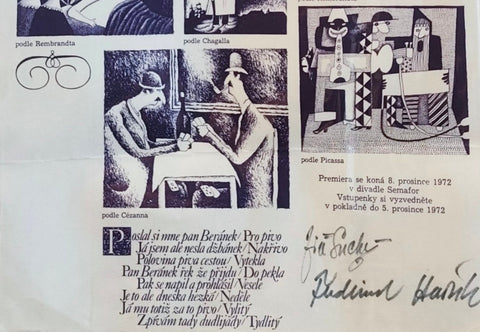 podle Rembrandta
podle Chagalla
podle Picassa
podle Cézanna
Premiera se koná 8. prosince 1972
v divadle Semafor
Vstupenky si vyzvedněte
v pokladně do 5. prosince 1972
Poslal si mne pan Beránek/Pro pivo
Já jsem ale nesla džbánek/Nakřivo
Polovina piva cestou/Vytekla
Pan Beránek řek že přijdu/Do pekla
Pak se napil a prohlásil/Vesele
Je to ale dneska hezká/Neděle
Já mu totiž za to pivo/Vylitý
Zpívám tady dudlijády/Tydlitý
Jiří Suchý
Ferdinand Havlík